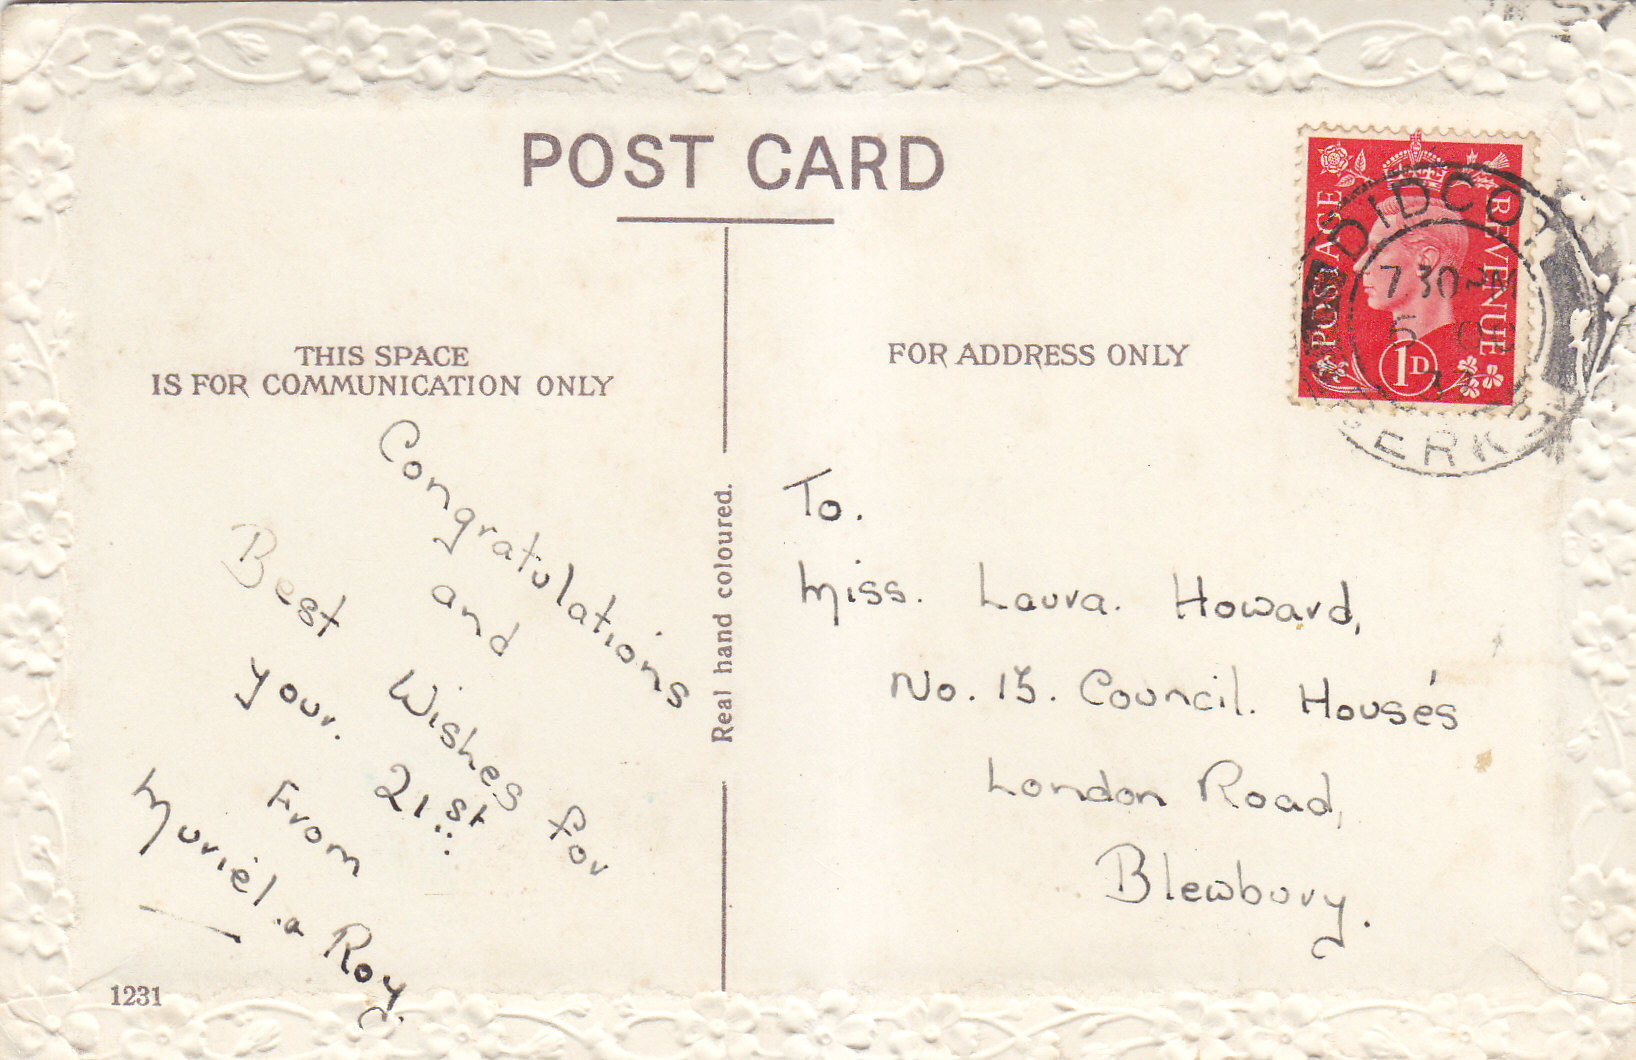 POST CARD
THIS SPACE
IS FOR COMMUNICATION ONLY
FOR ADDRESS ONLY
POSTAGE
REVENUE
1D
DIDCOT
7 30 PM
5
BERKS
Real hand coloured.
Congratulations
and
Best Wishes for
your. 21st
From
Muriel. a Roy.
To.
Miss. Laura. Howard,
No. 15. Council. House's
London Road,
Blewbury.
1231